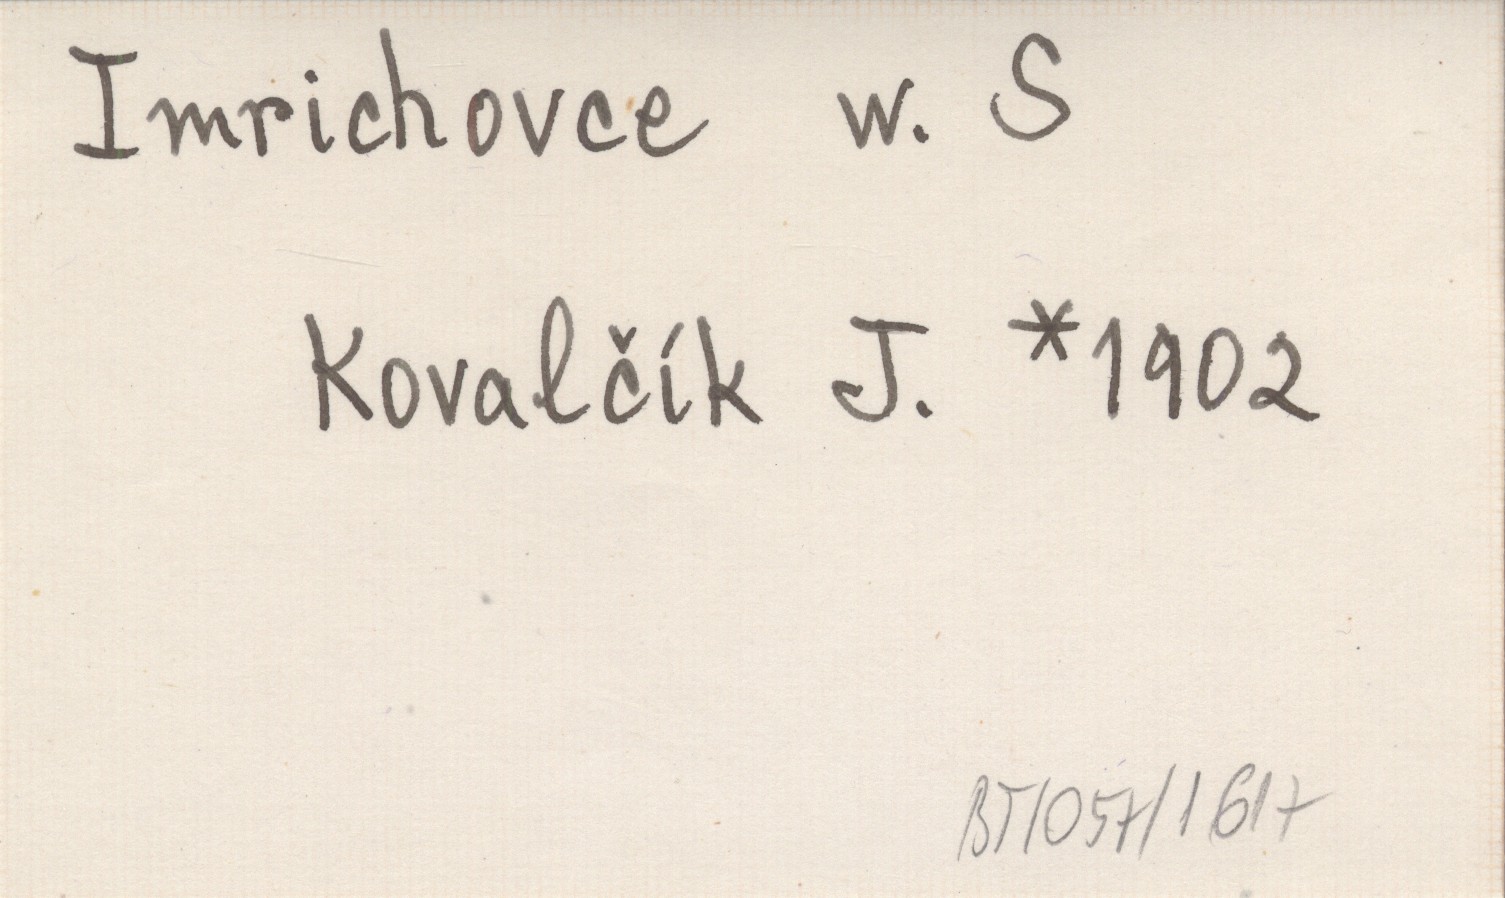 Imrichovce w. S
Kovalčík J. *1902
BT/057/1617